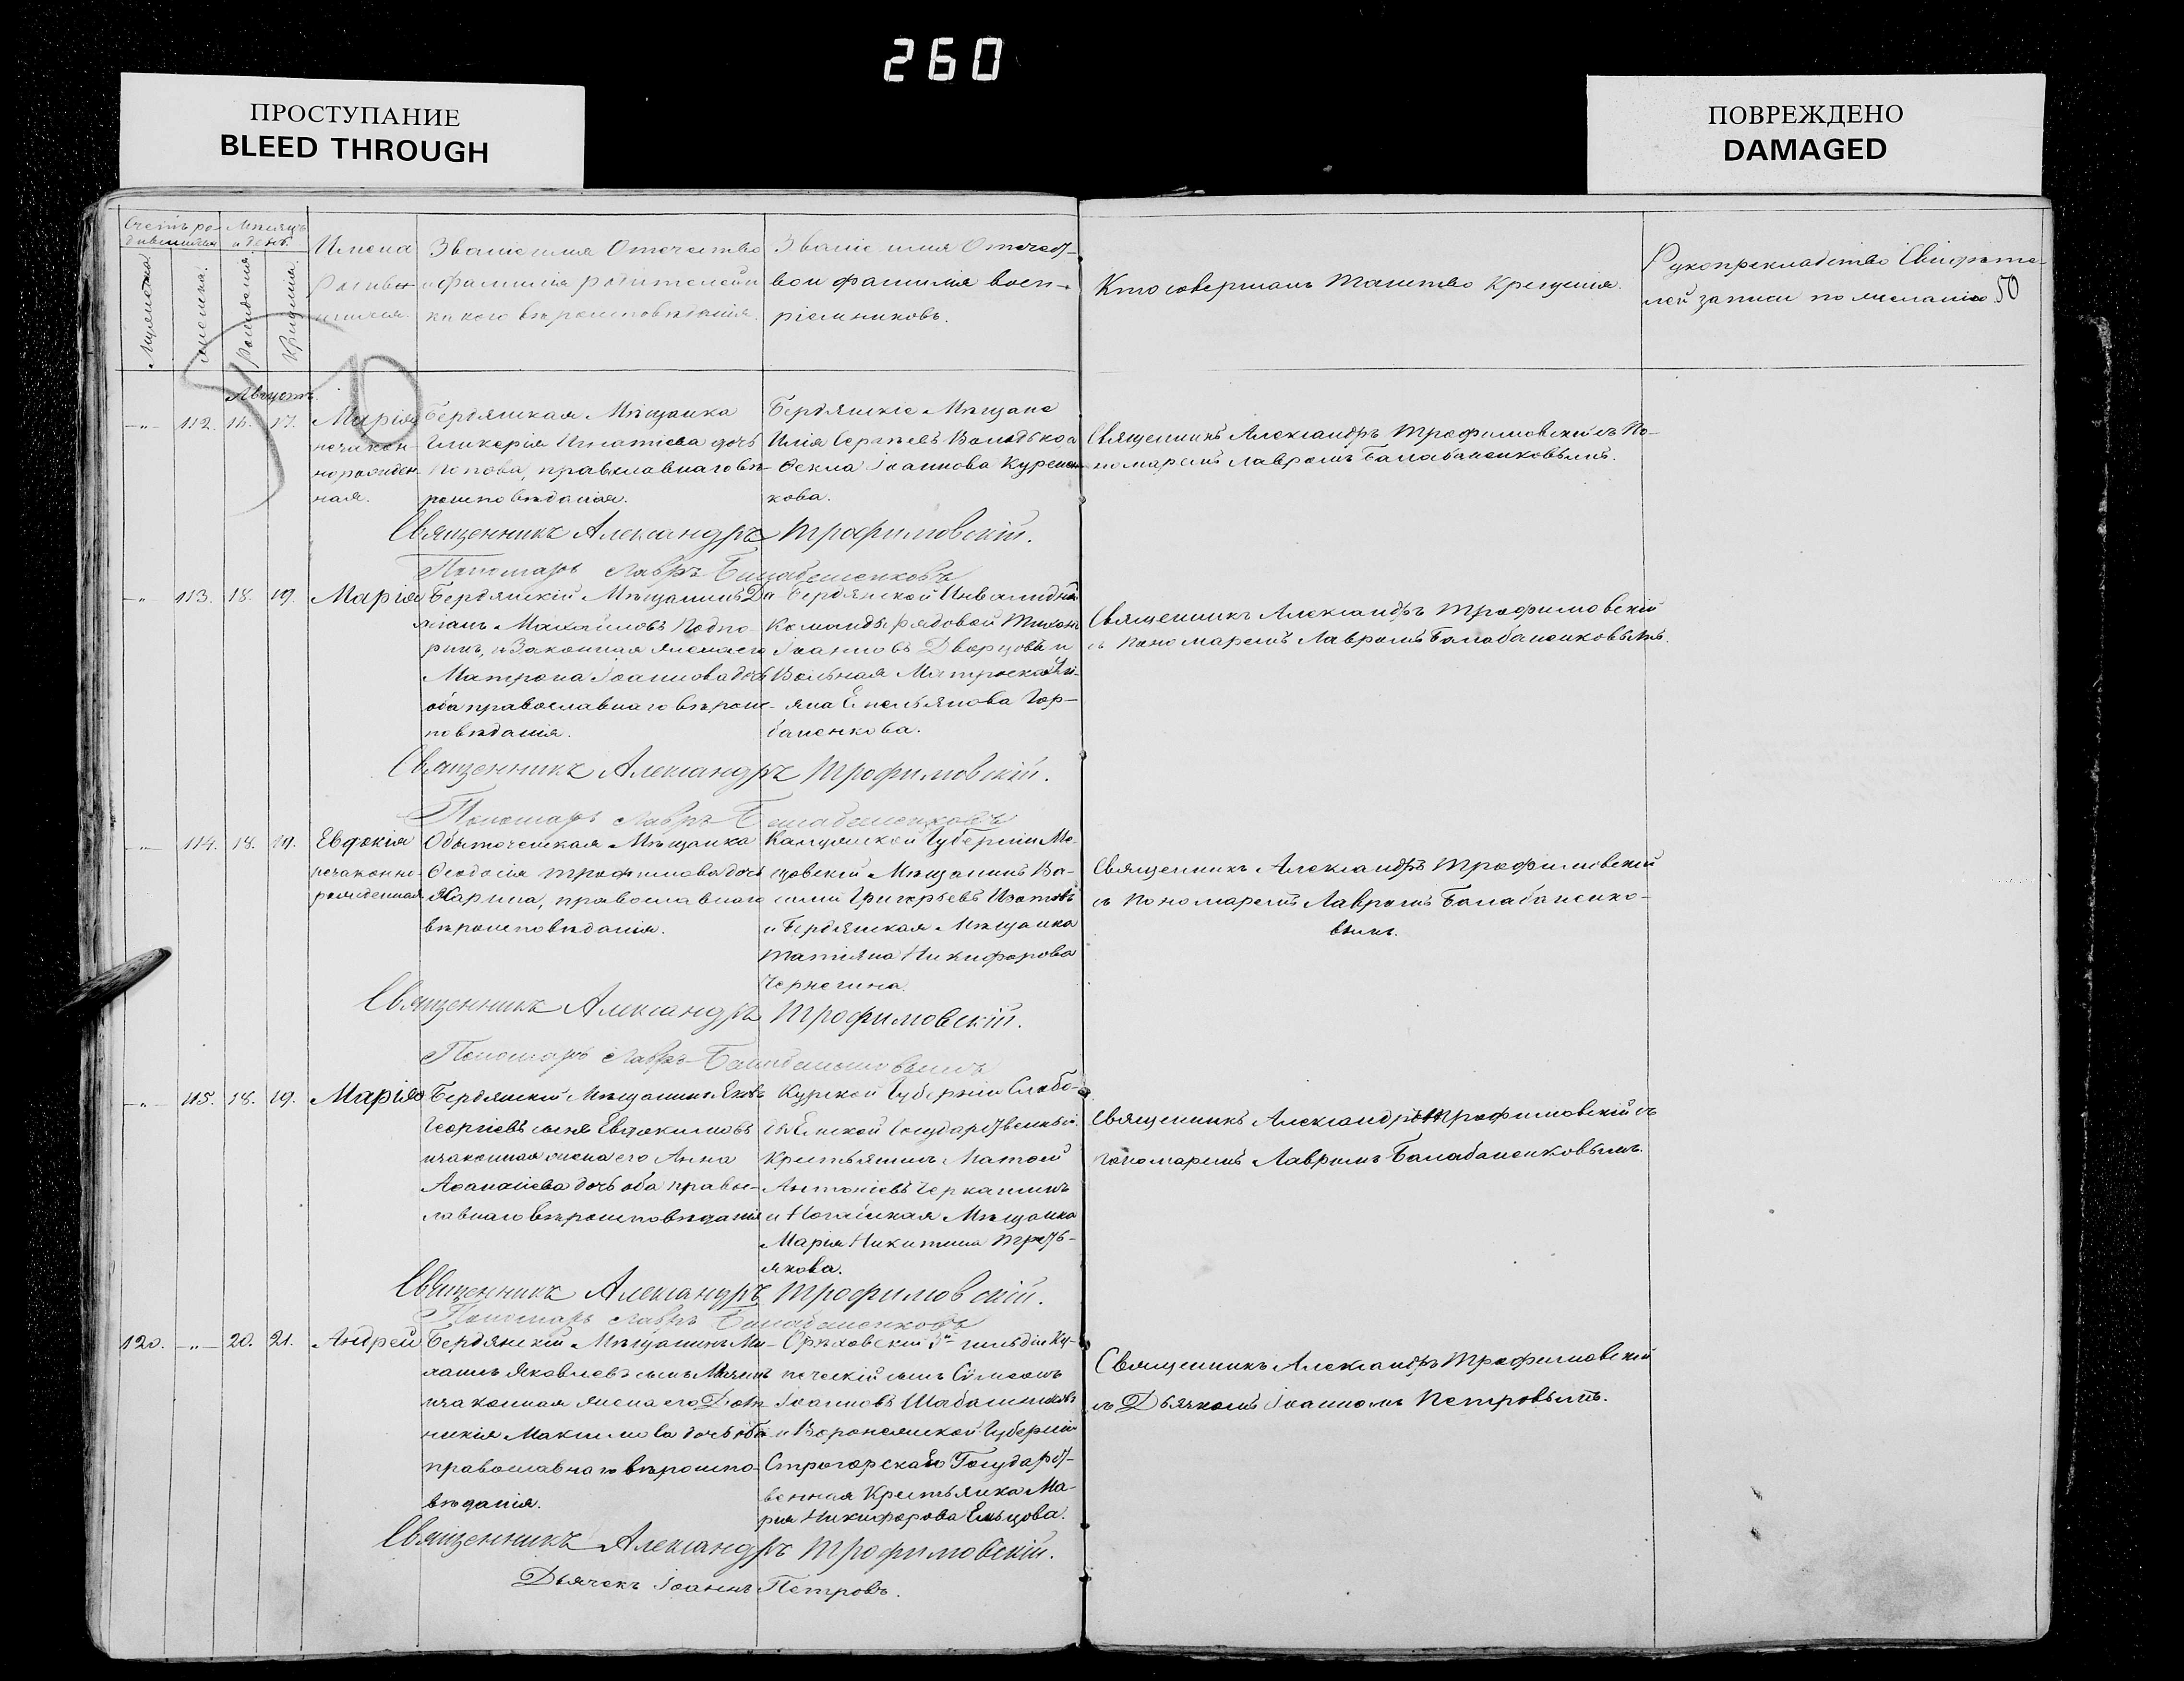 260
ПРОСТУПАНИЕ
BLEED THROUGH
ПОВРЕЖДЕНО
DAMAGED
Счетъ ро-
дившихся
Мѣсяцъ
и день.
Мужеска
женска.
Рождения.
Крещения.
Имена
Родив-
шихся.
Званіе имя Отчество
и фамилія родителей и
какого вѣроисповѣданія.
Званіе имя Отчест-
во и фамилія восп-
ріемниковъ.
Кто совершалъ таинство крещенія.
Рукоприкладство Свидѣте-
лей записи по желанію 50
Августъ.
-"- 112. 16. 17.
Марія
незакон-
норожден-
ная.
Бердянская Мѣщанка
Гликерія Игнатіева дочь
Попова, православнаго вѣ-
роисповѣданія.
Бердянскіе Мѣщане
Илія Сергѣевъ и
Ѳекла Іоаннова Курен-
кова.
Священникъ Александръ Трофимовскій съ По-
номаремъ Лавромъ Балабаненковымъ.
Священникъ Александръ Трофимовскій.
Пономарь Лавръ Балабаненковъ
-"- 113. 18. 19.
Марія
Бердянскій Мѣщанинъ Д
Михайловъ Подпо-
ринъ, и Законная жена его
Матрона Іоаннова дочь
оба православнаго вѣроис-
повѣданія.
Бердянской Инвалидной
Команды рядовой Тихонъ
Іоанновъ Дворцовъ и
Вольная Матроска
Емельянова Гор-
баненкова.
Священникъ Александръ Трофимовскій
съ Пономаремъ Лавромъ Балабаненковымъ.
Священникъ Александръ Трофимовскій.
Пономарь Лавръ Балабаненковъ
-"- 114. 18. 19.
Евдокія
незаконно-
рожденная
Обыточенская Мѣщанка
Ѳеодосія Трофимова дочь
Харина, православнаго
вѣроисповѣданія.
Калужской Губерніи Ме-
щовскій Мѣщанинъ Ва-
силій Григорьевъ Изотовъ
и Бердянская Мѣщанка
Татіяна Никифорова
Чернегина.
Священникъ Александръ Трофимовскій
съ Пономаремъ Лавромъ Балабаненко-
вымъ.
Священникъ Александръ Трофимовскій.
Пономарь Лавръ
-"- 115. 18. 19.
Марія
Бердянскій Мѣщанинъ Яковъ
Георгіевъ сынъ Евдокимовъ
и законная жена его Анна
Аѳанасіева дочь оба право-
славнаго вѣроисповѣданія
Курской Губерніи Слобо-
ды Государственный
Крестьянинъ Матѳей
Антоніевъ Черкашинъ
и Ногайская Мѣщанка
Марія Никитина Треть-
якова.
Священникъ Александръ Трофимовскій съ
пономаремъ Лавромъ Балабаненковымъ.
Священникъ Александръ Трофимовскій.
Пономарь Лавръ Балабаненковъ
120. -"- 20. 21.
Андрей
Бердянскій Мѣщанинъ Ми-
хаилъ Яковлевъ сынъ
и законная жена его Дом-
никія Максимова дочь оба
православнаго вѣроиспо-
вѣданія.
Орѣховскій 3й гильдіи Ку-
печескій сынъ Сѵмеонъ
Іоанновъ Шабашниковъ
и Воронежской Губерніи
Государст-
венная Крестьянка Ма-
рія Никифорова Ельцова.
Священникъ Александръ Трофимовскій
съ Дьячкомъ Іоанномъ Петровымъ.
Священникъ Александръ Трофимовскій.
Дьячекъ Іоаннъ Петровъ.